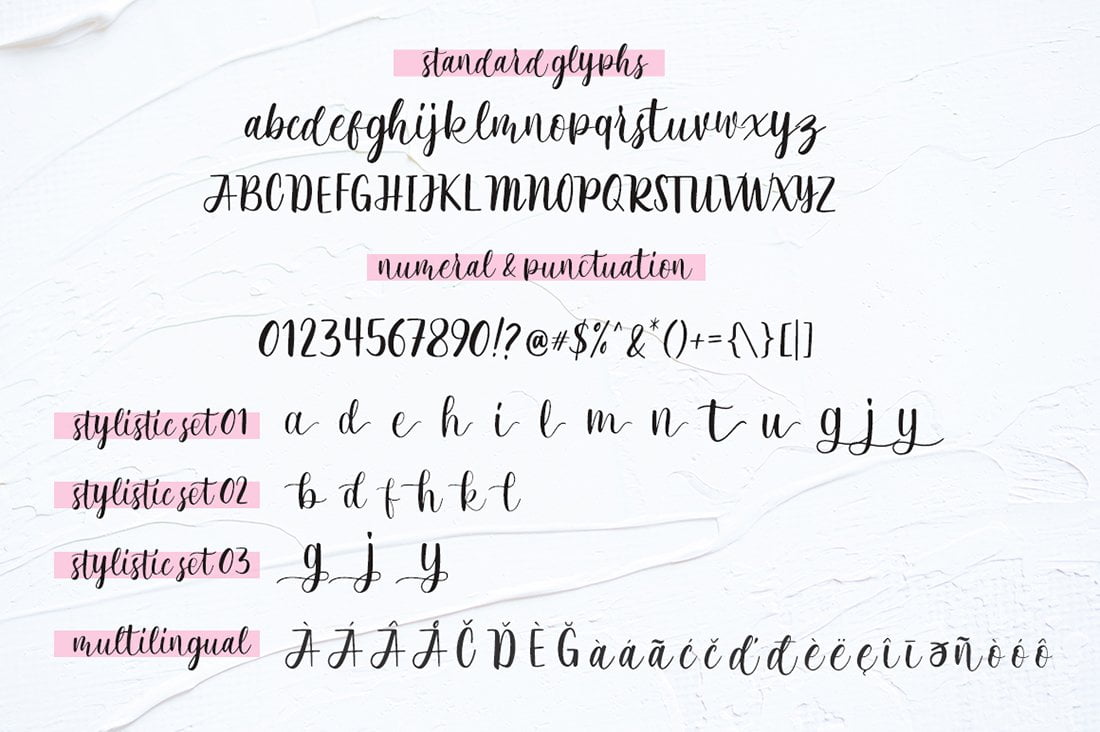 standard glyphs
abcdefghijklmnopqrstuvwxyz
ABCDEFGHIJKLMNOPQRSTUVWXYZ
numeral & punctuation
01234567890!?@#$%^&*()+={\}[|]
stylistic set 01 a d e h i l m n t u g j y
stylistic set 02 b d f h k t
stylistic set 03 g j y
multilingual À Á Â Å Č Ď È Ğ à á ã ć č ď đ è ë ę î ī ð ñ ò ó ô